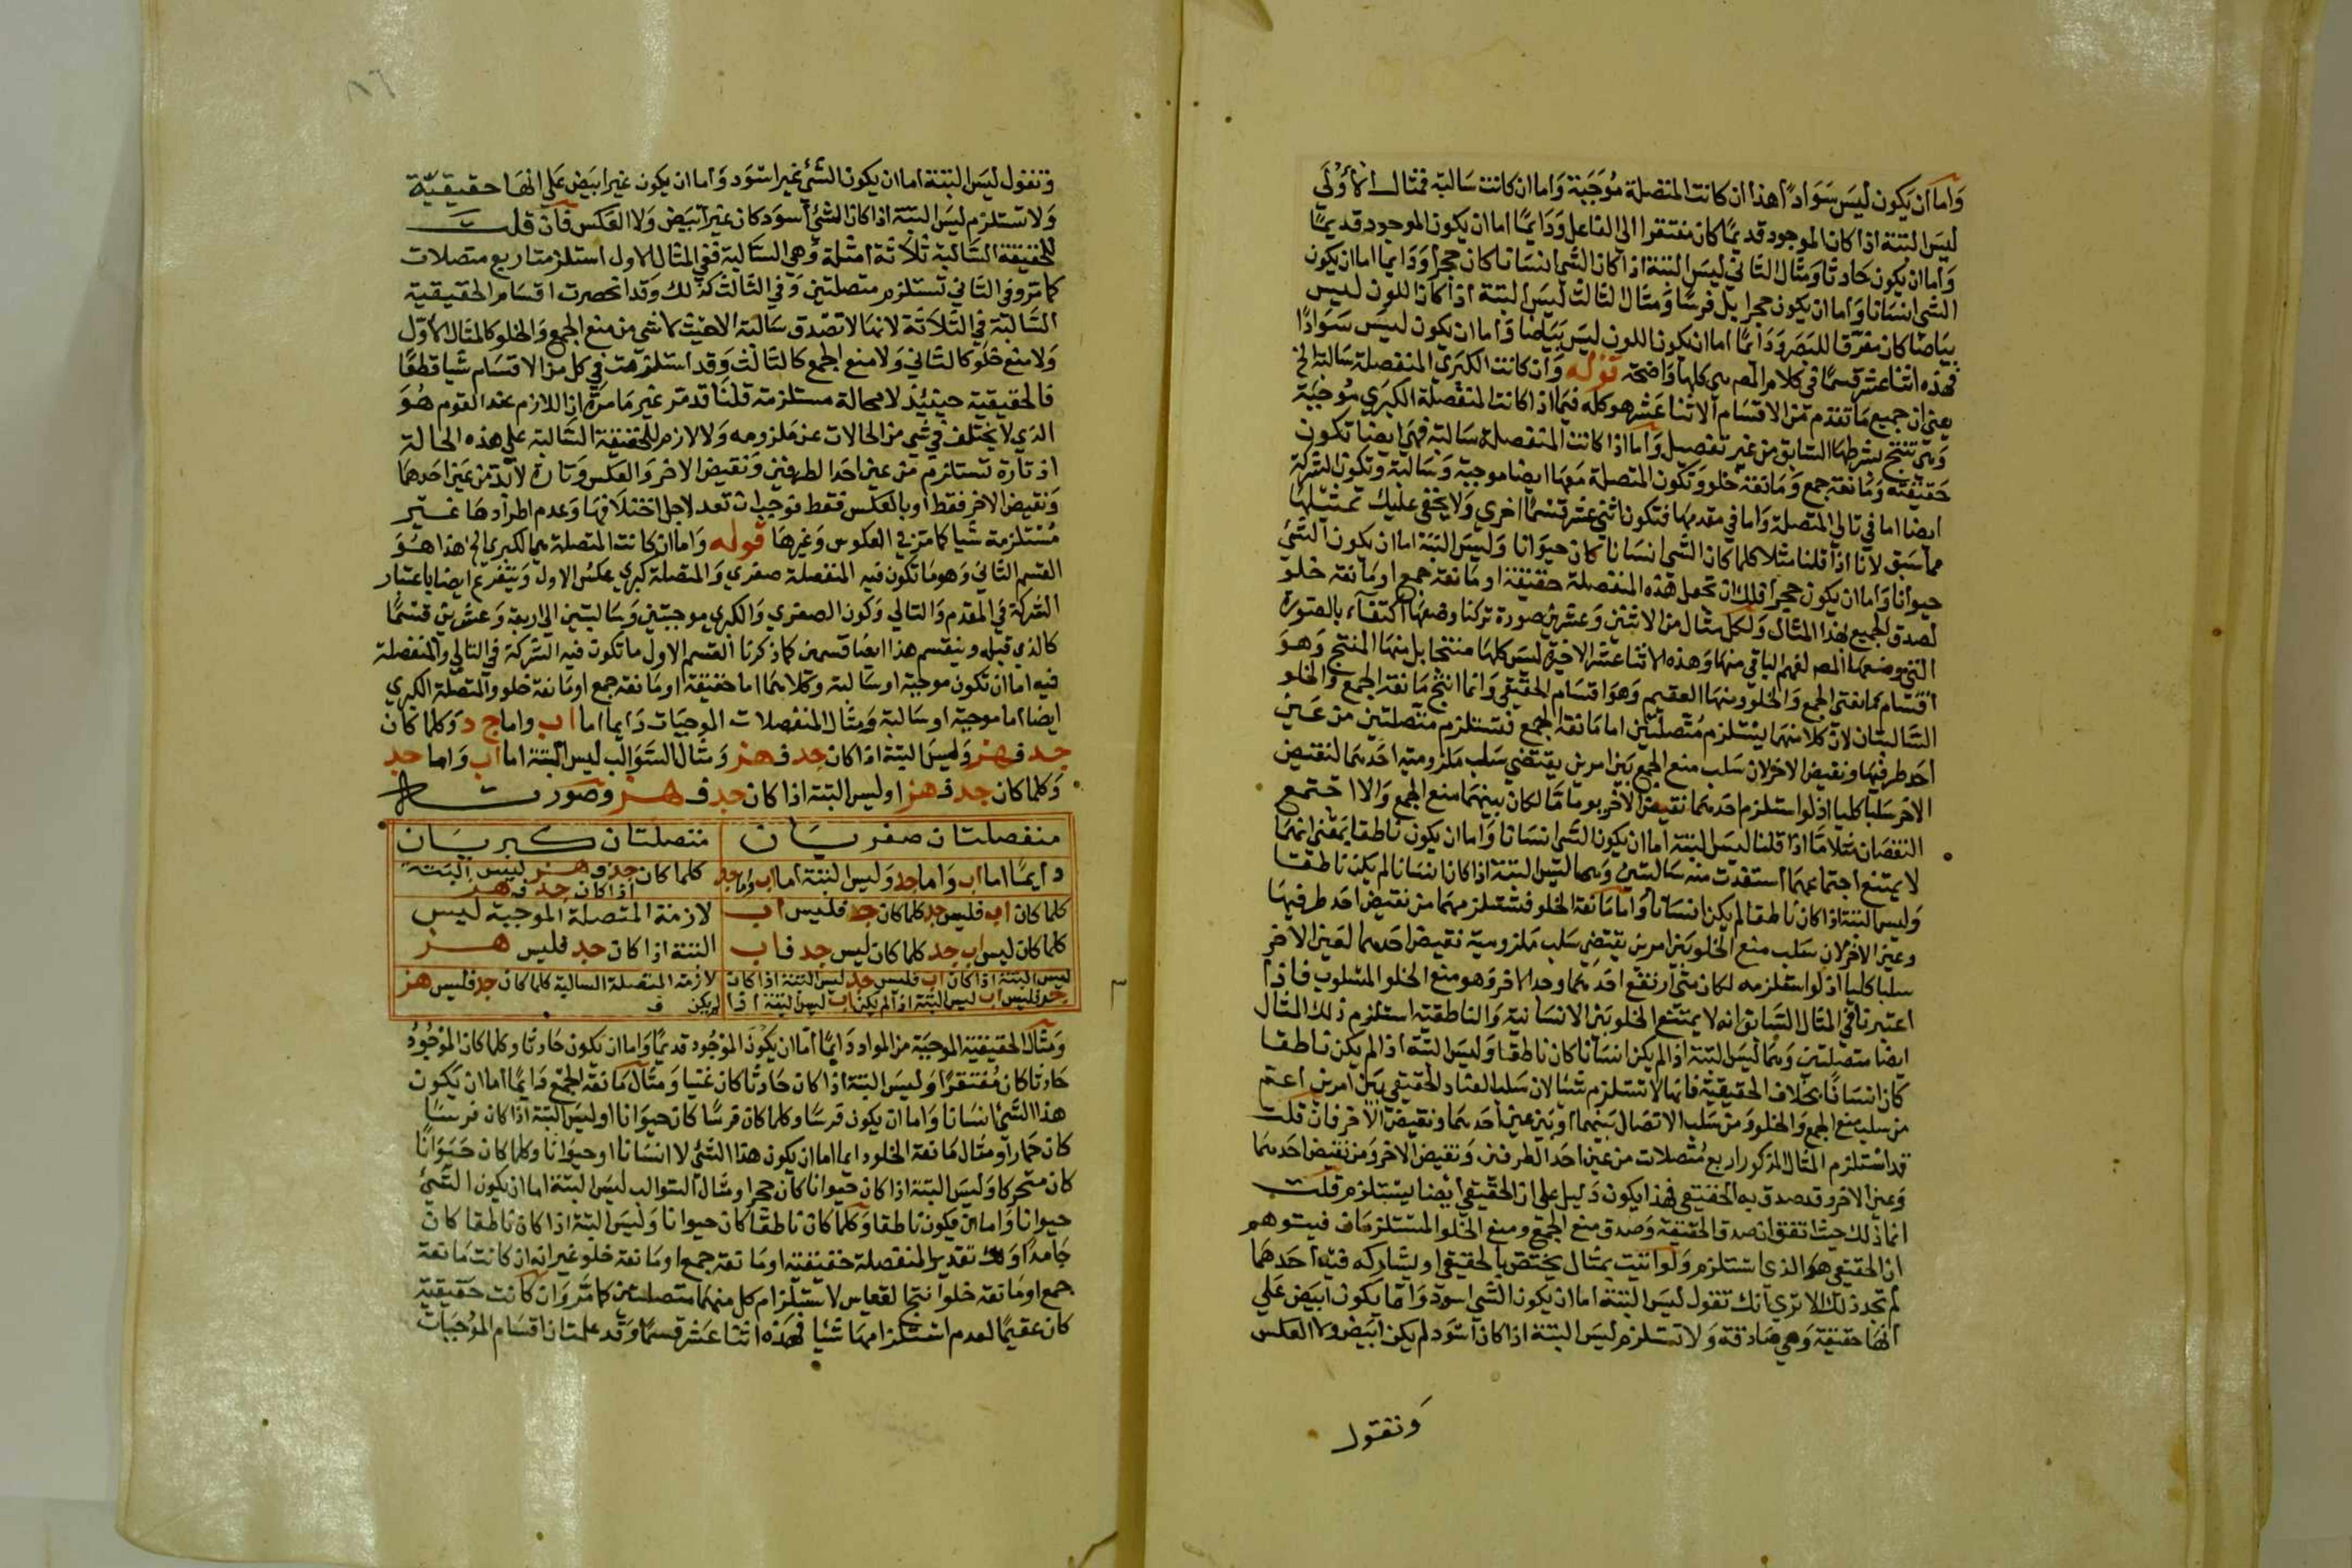 واما ان يكون ليس سوادا هذا ان كانت المنفصلة موجبة واما ان كانت سالبة فمثال الاولى
ليس البتة اذا كان الموجود قديما كان مفتقرا الى الفاعل ودايما اما ان يكون الموجود قديما
واما ان يكون حادثا ومثال الثاني ليس البتة اذا كان الشي انسانا كان حجرا ودايما اما ان يكون
الشي انسانا واما ان يكون حجرا بل فرسا ومثال الثالث ليس البتة اذا كان اللون ليس
بياضا كان مفرقا للبصر ودايما اما ان يكون اللون ليس بياضا واما ان يكون ليس سوادا
فهذه اثنا عشر قسما في كلام المص وهي كلها واضحة قوله وان كانت الكبرى المنفصلة سالبة الخ
يعني ان جميع ما تقدم من الاقسام الاثنا عشر هو كله فيما اذا كانت المنفصلة الكبرى موجبة
وهي تنتج بشرطها السابق من غير تفصيل واما اذا كانت المنفصلة سالبة فهي ايضا تكون
حقيقية ومانعة جمع ومانعة خلو وتكون المتصلة معها ايضا موجبة وسالبة وتكون الشركة
ايضا اما في تالي المتصلة واما في مقدمها فتكون اثني عشر قسما اخرى ولا يخفى عليك تمثيلها
مما سبق لانا اذا قلنا مثلا كلما كان الشي انسانا كان حيوانا وليس البتة اما ان يكون الشي
حيوانا واما ان يكون حجرا فلك ان تجعل هذه المنفصلة حقيقية او مانعة جمع او مانعة خلو
لصدق الجميع بهذا المثال ولكل مثال من الاثنين وعشرين صورة تركنا وضعها اكتفاء بالصورة
التي وضعها المص لفهم الباقي منها وهذه الاثنا عشر الاخيرة ليس كلها منتجا بل منها المنتج وهو
اقسام مانعتي الجمع والخلو ومنها العقيم وهو اقسام الحقيقي وانما انتج مانعة الجمع والخلو
السالبتان لان كلا منهما يستلزم متصلتين اما مانعة الجمع فتستلزم متصلتين من عين
احد طرفيها ونقيض الاخر لان سلب منع الجمع بين امرين يقتضي سلب ملزومية احدهما لنقيض
الاخر سلبا كليا اذ لو استلزم احدهما نقيض الاخر يوما ما لكان بينهما منع الجمع والا اجتمع
النقيضان مثلا ما اذا قلنا ليس البتة اما ان يكون الشي انسانا واما ان يكون ناطقا بمعنى انهما
لا يمتنع اجتماعهما استفدت منه سالبتين وهما ليس البتة اذا كان انسانا لم يكن ناطقا
وليس البتة اذا كان ناطقا لم يكن انسانا واما مانعة الخلو فتستلزمهما من نقيض احد طرفيها
وعين الاخر لان سلب منع الخلو بين امرين يقتضي سلب ملزومية نقيض احدهما لعين الاخر
سلبا كليا اذ لو استلزمه لكان متى ارتفع احدهما وجد الاخر وهو منع الخلو المسلوب فاذا
اعتبرنا في المثال السابق انه لا يمتنع الخلو بين الانسانية والناطقية استلزم ذلك المثال
ايضا متصلتين وهما ليس البتة اذا لم يكن انسانا كان ناطقا وليس البتة اذا لم يكن ناطقا
كان انسانا بخلاف الحقيقية فانها لا تستلزم شيئا لان سلب العناد الحقيقي بين امرين اعم
من سلب منع الجمع والخلو ومن سلب الاتصال بينهما او بين عين احدهما ونقيض الاخر فان قلت
قد استلزم المثال المذكور اربع متصلات من عين احد الطرفين ونقيض الاخر ومن نقيض احدهما
وعين الاخر وقد صدق به الحقيقي فهذا يكون دليل على ان الحقيقي ايضا يستلزم قلت
انما ذلك حيث اتفق ان صدق الحقيقية وصدق منع الجمع ومنع الخلو المستلزمان فيتوهم
ان الحقيقي هو الذي استلزم ولو اتيت بمثال يختص بالحقيقي او يشاركه فيه احدهما
لم تجد ذلك الا ترى انك تقول ليس البتة اما ان يكون الشي اسود واما يكون ابيض على
انها حقيقية وهي صادقة ولا تستلزم ليس البتة اذا كان اسود لم يكن ابيض ولا العكس
ونقول
٨٦
ونقول ليس البتة اما ان يكون الشي غير اسود واما ان يكون غير ابيض على انها حقيقية
ولا تستلزم ليس البتة اذا كان الشي اسود كان غير ابيض ولا العكس فان قلت
للحقيقة السالبة ثلاثة امثلة وهي السالبة ففي المثال الاول استلزمت اربع متصلات
كما مر وفي الثاني تستلزم متصلتين وفي الثالث كذلك وقد انحصرت اقسام الحقيقية
السالبة في الثلاثة لانها لا تصدق سالبة الا حيث لا شي من منع الجمع والخلو كالمثال الاول
ولا منع خلو كالثاني ولا منع الجمع كالثالث وقد استلزمت في كل من الاقسام شيا قطعا
فالحقيقية حينئذ لا محالة مستلزمة قلنا قد مر غير ما مرة ان اللازم عند القوم هو
الذي لا يختلف في شي من الحالات عن ملزومه ولا لازم للحقيقة السالبة على هذه الحالة
اذ تارة تستلزم من عين احد الطرفين ونقيض الاخر والعكس وتارة لا بد من عين احدهما
ونقيض الاخر فقط او بالعكس فقط فوجب ان تعد لاجل اختلافها وعدم اطرادها غير
مستلزمة شيا كما مر في العكوس وغيرها قوله واما ان كانت المتصلة هي الكبرى الخ هذا هو
القسم الثاني وهو ما تكون فيه المنفصلة صغرى والمتصلة كبرى عكس الاول ويتفرع ايضا باعتبار
الشركة في المقدم والتالي وكون الصغرى والكبرى موجبتين وسالبتين الى اربعة وعشرين قسما
كالذي قبله وينقسم هذا ايضا قسمين كما ذكرنا القسم الاول ما تكون فيه الشركة في التالي والمنفصلة
فيه اما ان تكون موجبة او سالبة وكلاهما اما حقيقية او مانعة جمع او مانعة خلو والمتصلة الكبرى
ايضا اما موجبة او سالبة ومثال المنفصلات الموجبات دايما اما اب واما ج د وكلما كان
جد فهز وليس البتة اذا كان جد فهز ومثال السوالب ليس البتة اما اب واما جد
وكلما كان جد فهز او ليس البتة اذا كان جد فهز وصورتها
منفصلتان صغريان متصلتان كبريان
دايما اما اب واما جد وليس البتة اما اب واما جد كلما كان جد فهز ليس البتة
اذا كان جد فهز
كلما كان اب فليس جد كلما كان جد فليس اب لازمة المتصلة الموجبة ليس
كلما كان ليس اب جد كلما كان ليس جد فاب البتة اذا كان جد فليس هز
ليس البتة اذا كان اب فليس جد ليس البتة اذا كان لازمة المتصلة السالبة كلما كان جد فليس هز
جد فليس اب ليس البتة اذا لم يكن اب ليس البتة اذا لم يكن
ومثال الحقيقية الموجبة من المواد دايما اما ان يكون الموجود قديما واما ان يكون حادثا وكلما كان الموجود
حادثا كان مفتقرا وليس البتة اذا كان حادثا كان غنيا ومثال مانعة الجمع دايما اما ان يكون
هذا الشي انسانا واما ان يكون فرسا وكلما كان فرسا كان حيوانا او ليس البتة اذا كان فرسا
كان حمارا ومثال مانعة الخلو دايما اما ان يكون هذا الشي لا انسانا او حيوانا وكلما كان حيوانا
كان متحركا وليس البتة اذا كان حيوانا كان حجرا ومثال السوالب ليس البتة اما ان يكون الشي
حيوانا واما ان يكون ناطقا وكلما كان ناطقا كان حيوانا وليس البتة اذا كان ناطقا كان
جامدا ولك تقدير المنفصلة حقيقية او مانعة جمع او مانعة خلو غير انه ان كانت مانعة
جمع او مانعة خلو انتجا لاستلزام كل منهما متصلتين كما مر وان كانت حقيقية
كان عقيما لعدم استلزامها شيا فهذه اثنا عشر قسما وقد علمت ان اقسام الموجبات